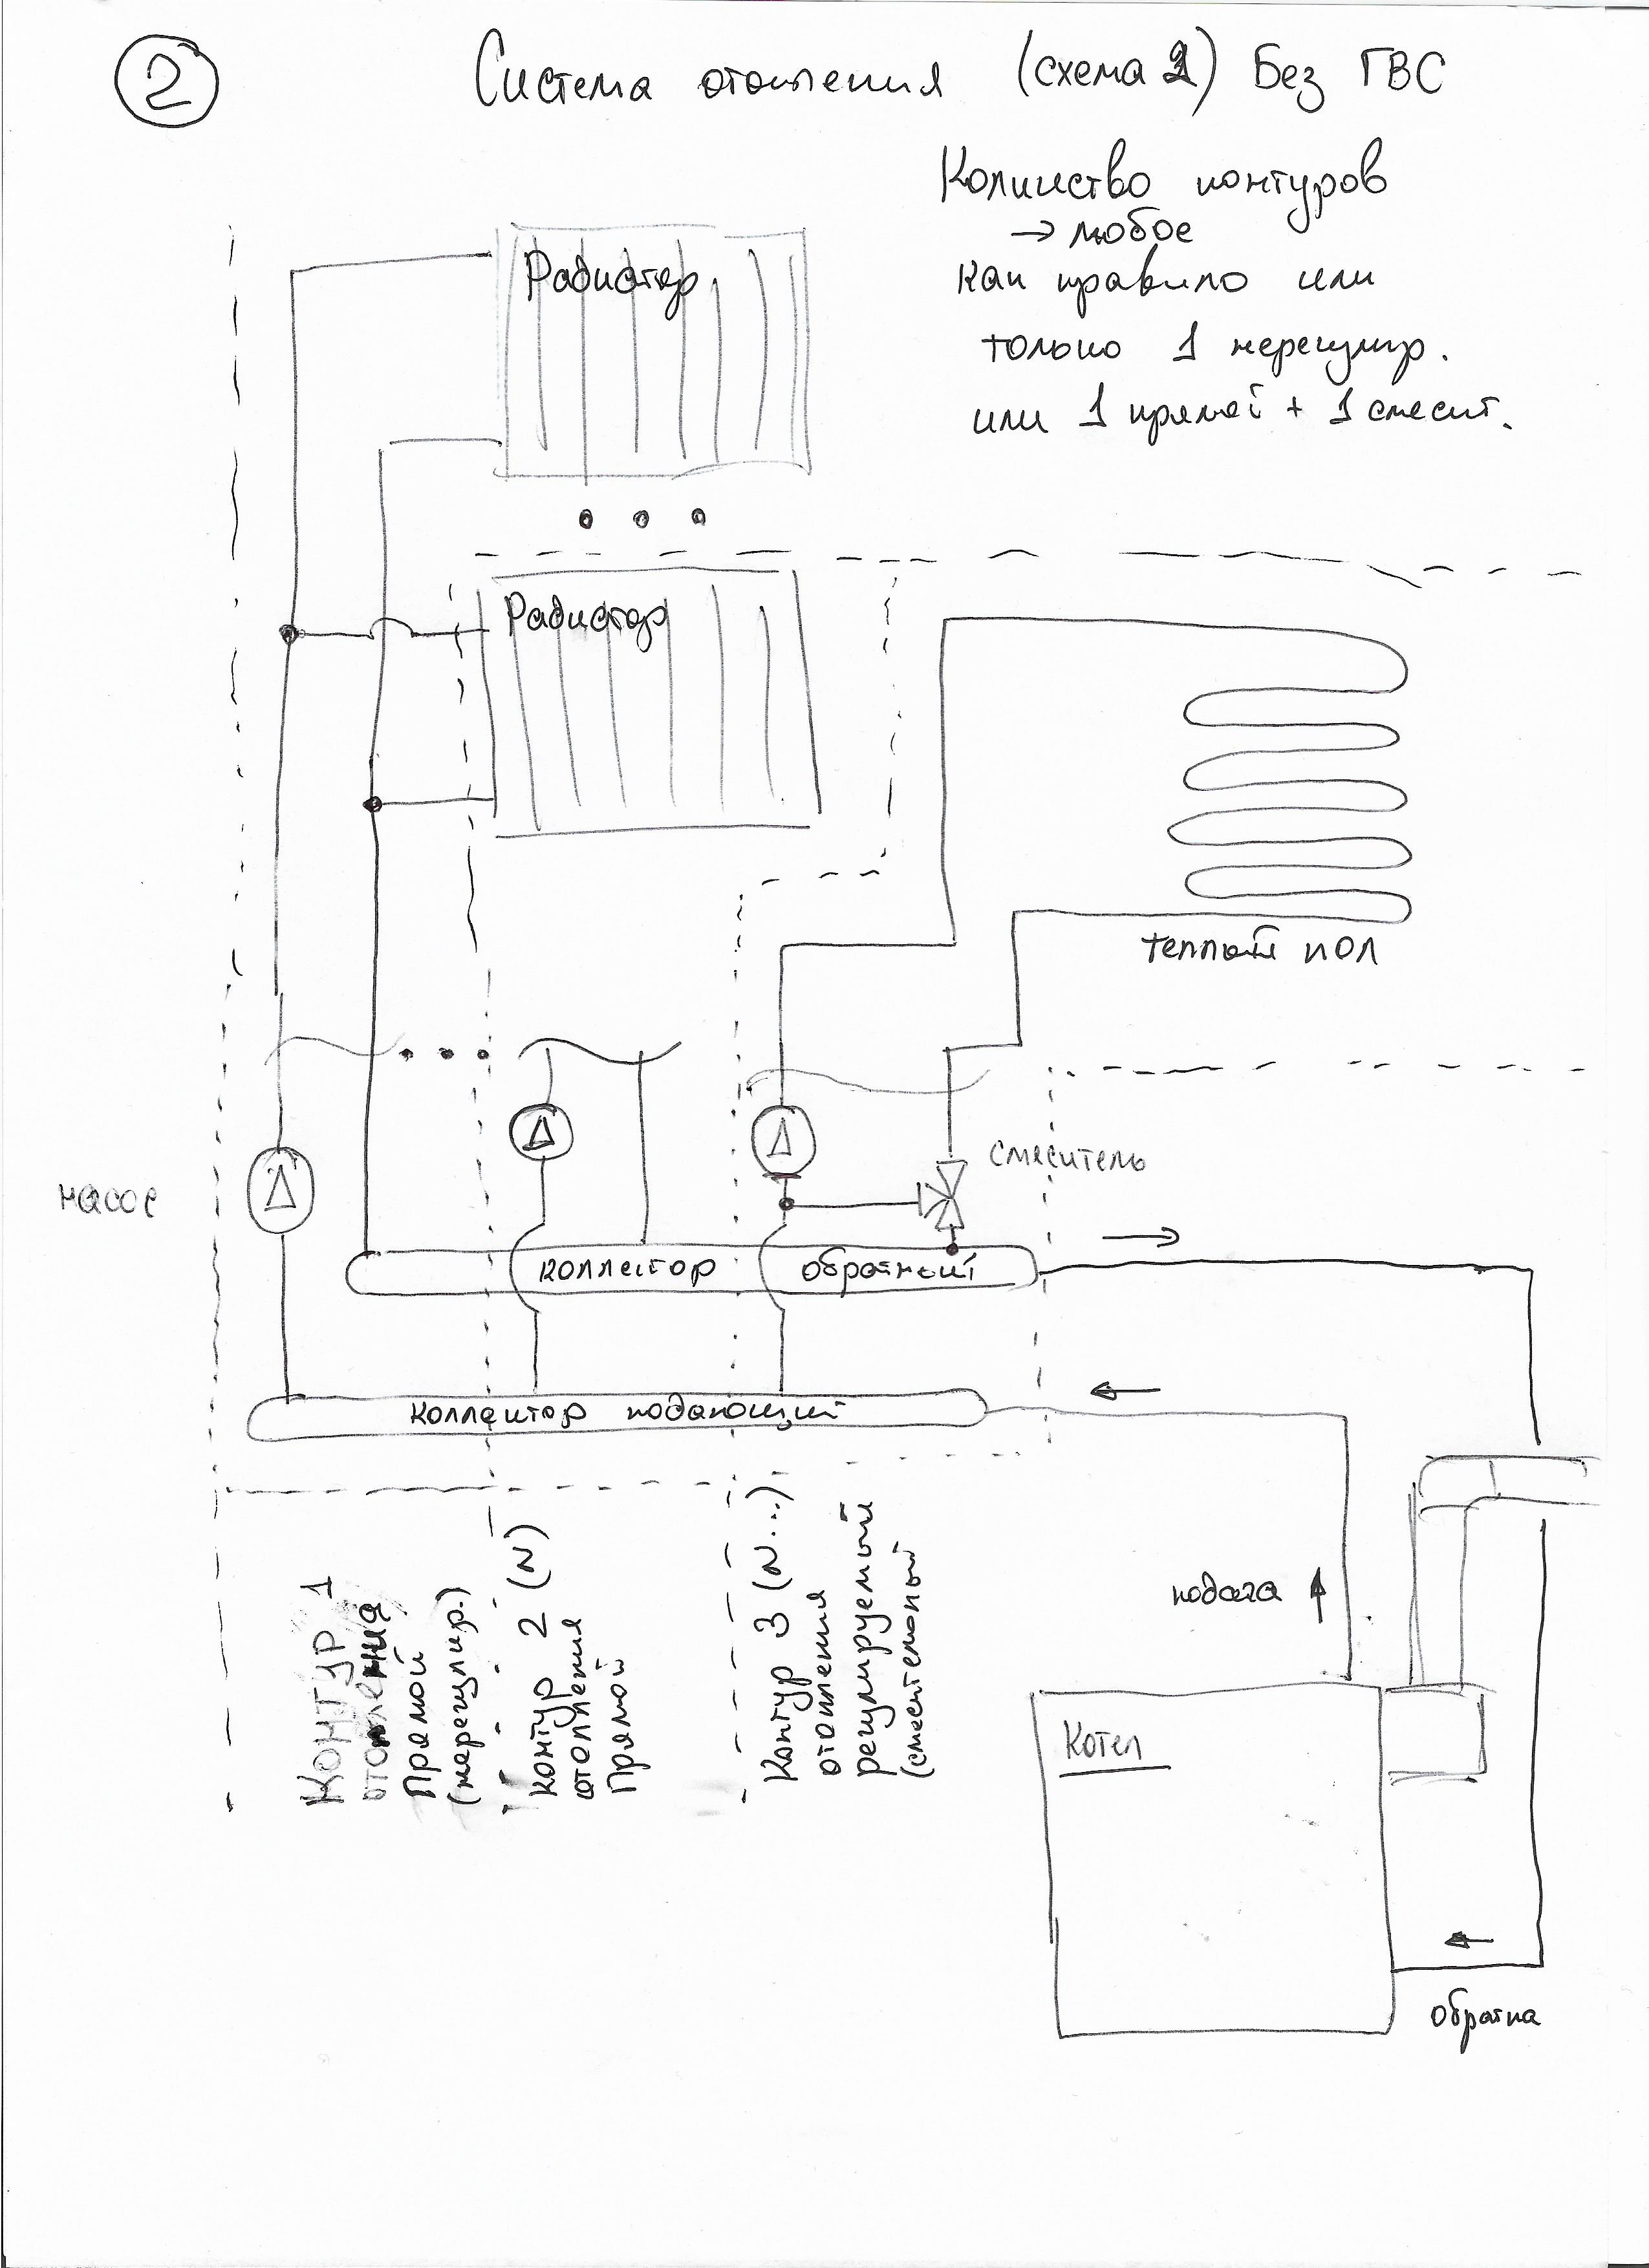 2
Система отопления (схема 2) Без ГВС
Количество контуров
→ любое
как правило или
только 1 нерегулир.
или 1 прямой + 1 смесит.
Радиатор
Радиатор
теплый пол
смеситель
насос
коллектор обратный
коллектор подающий
Контур 1
отопления
Прямой
(нерегулир.)
контур 2 (N)
отопления
Прямой
Контур 3 (N...)
отопления
регулируемый
(смесительный)
подача
Котел
обратка